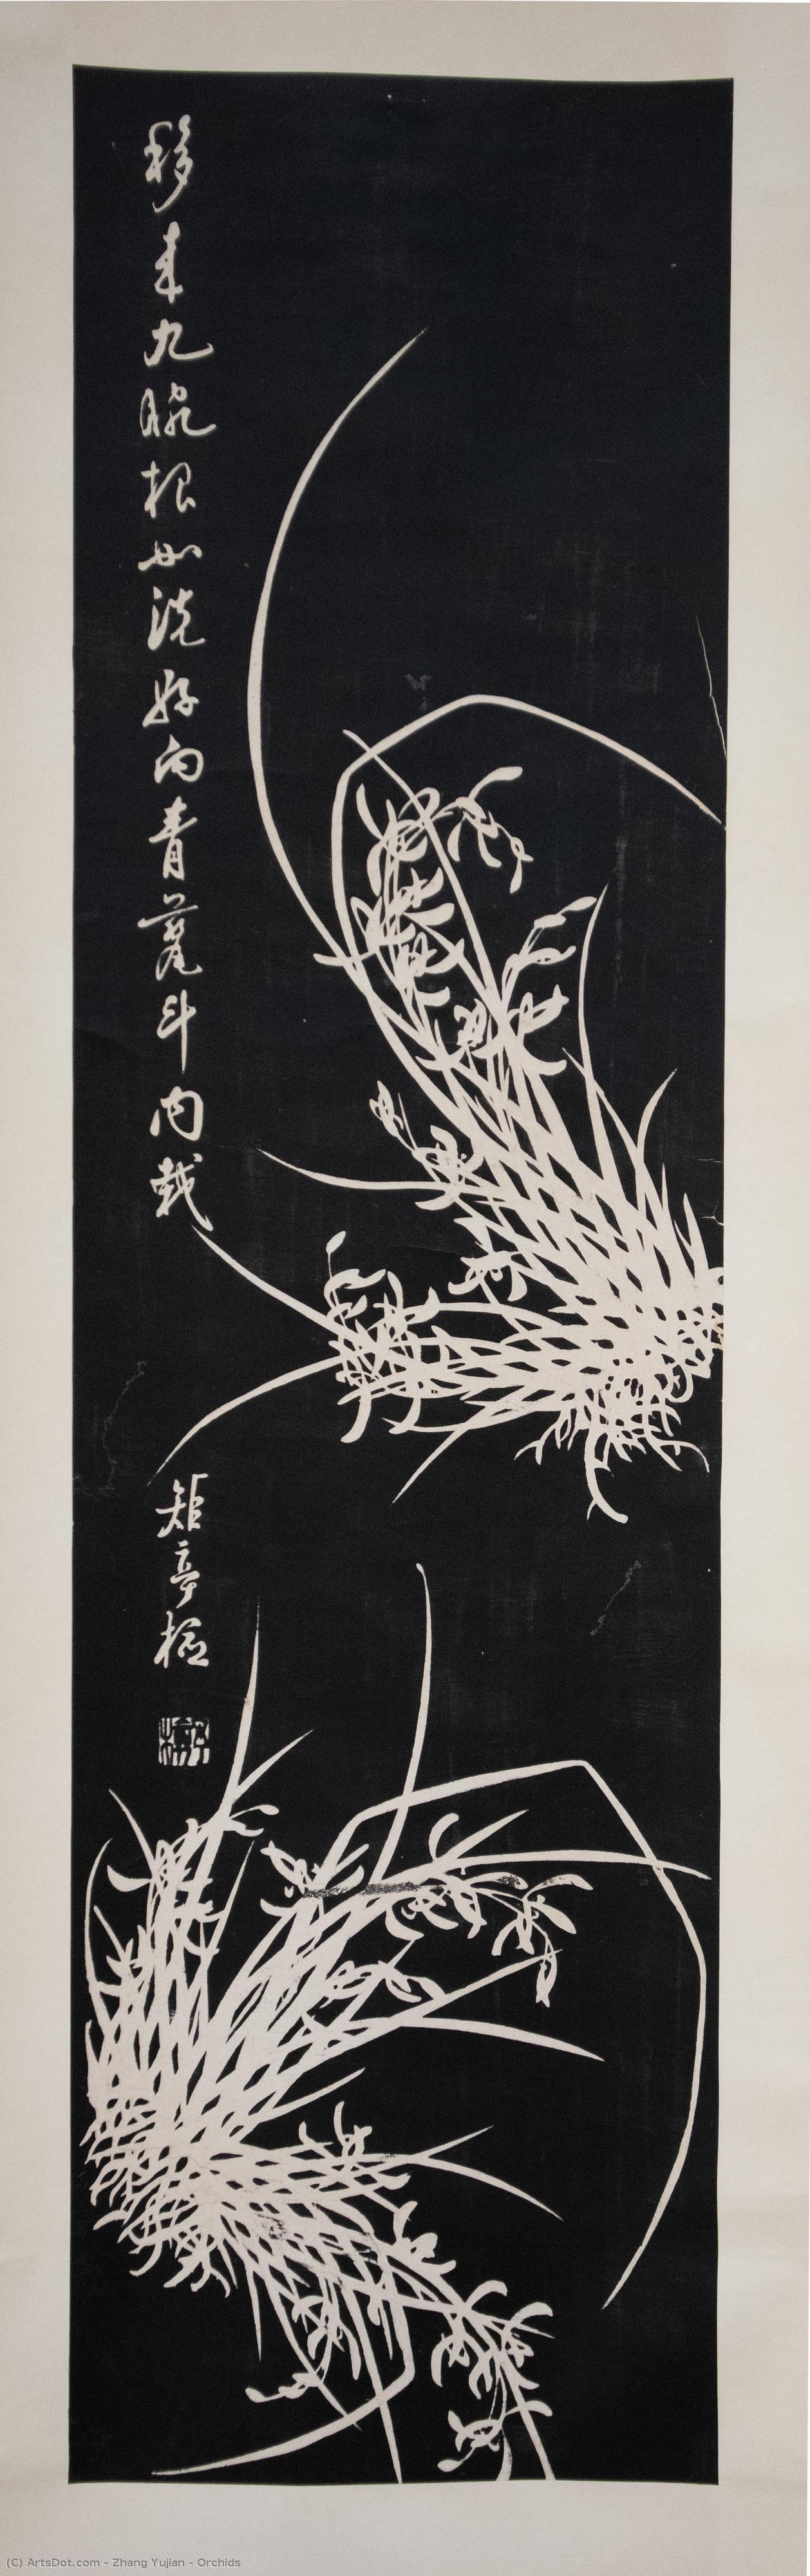 移来九畹根如洗好向青藁斗内栽
矩亭
(C) ArtsDot.com - Zhang Yujian - Orchids